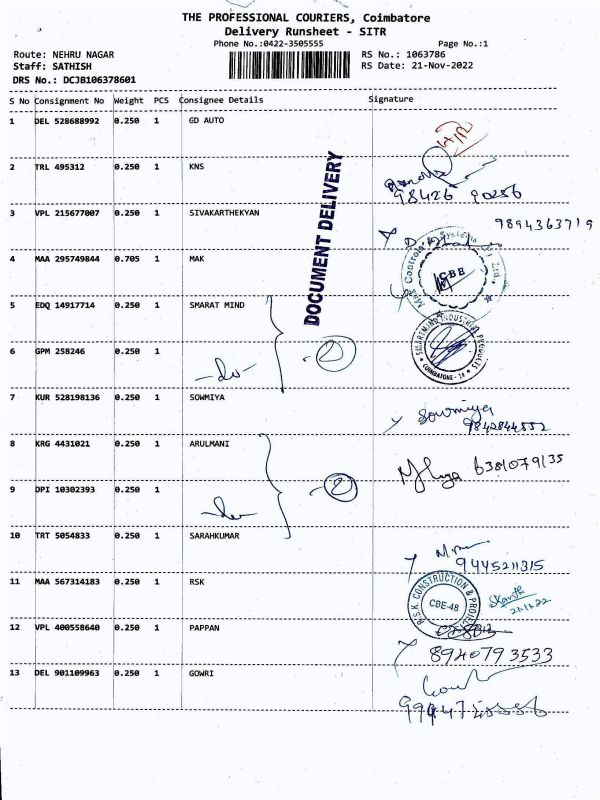 THE PROFESSIONAL COURIERS, Coimbatore
Delivery Runsheet - SITR
Phone No.:0422-3505555 Page No.:1
Route: NEHRU NAGAR RS No.: 1063786
Staff: SATHISH RS Date: 21-Nov-2022
DRS No.: DCJB106378601
S No Consignment No Weight PCS Consignee Details Signature
1 DEL 528688992 0.250 1 GD AUTO
2 TRL 495312 0.250 1 KNS
98426 90286
DOCUMENT DELIVERY
3 VPL 215677007 0.250 1 SIVAKARTHEKYAN
9894363719
4 MAA 295749844 0.705 1 MAK
CBE
5 EDQ 14917714 0.250 1 SMARAT MIND
SMARTMIND INDUSTRIAL PRODUCTS
COIMBATORE - 14
6 GPM 258246 0.250 1
-do- -②
7 KUR 528198136 0.250 1 SOWMIYA
Sowmiya
9842844552
8 KRG 4431021 0.250 1 ARULMANI
6381079135
9 DPI 10302393 0.250 1
-do- -②
10 TRT 5054833 0.250 1 SARAHKUMAR
9445211315
11 MAA 567314183 0.250 1 RSK
R.S.K CONSTRUCTION &
CBE-48
21.11.22
12 VPL 400558640 0.250 1 PAPPAN
8940793533
13 DEL 901109963 0.250 1 GOWRI